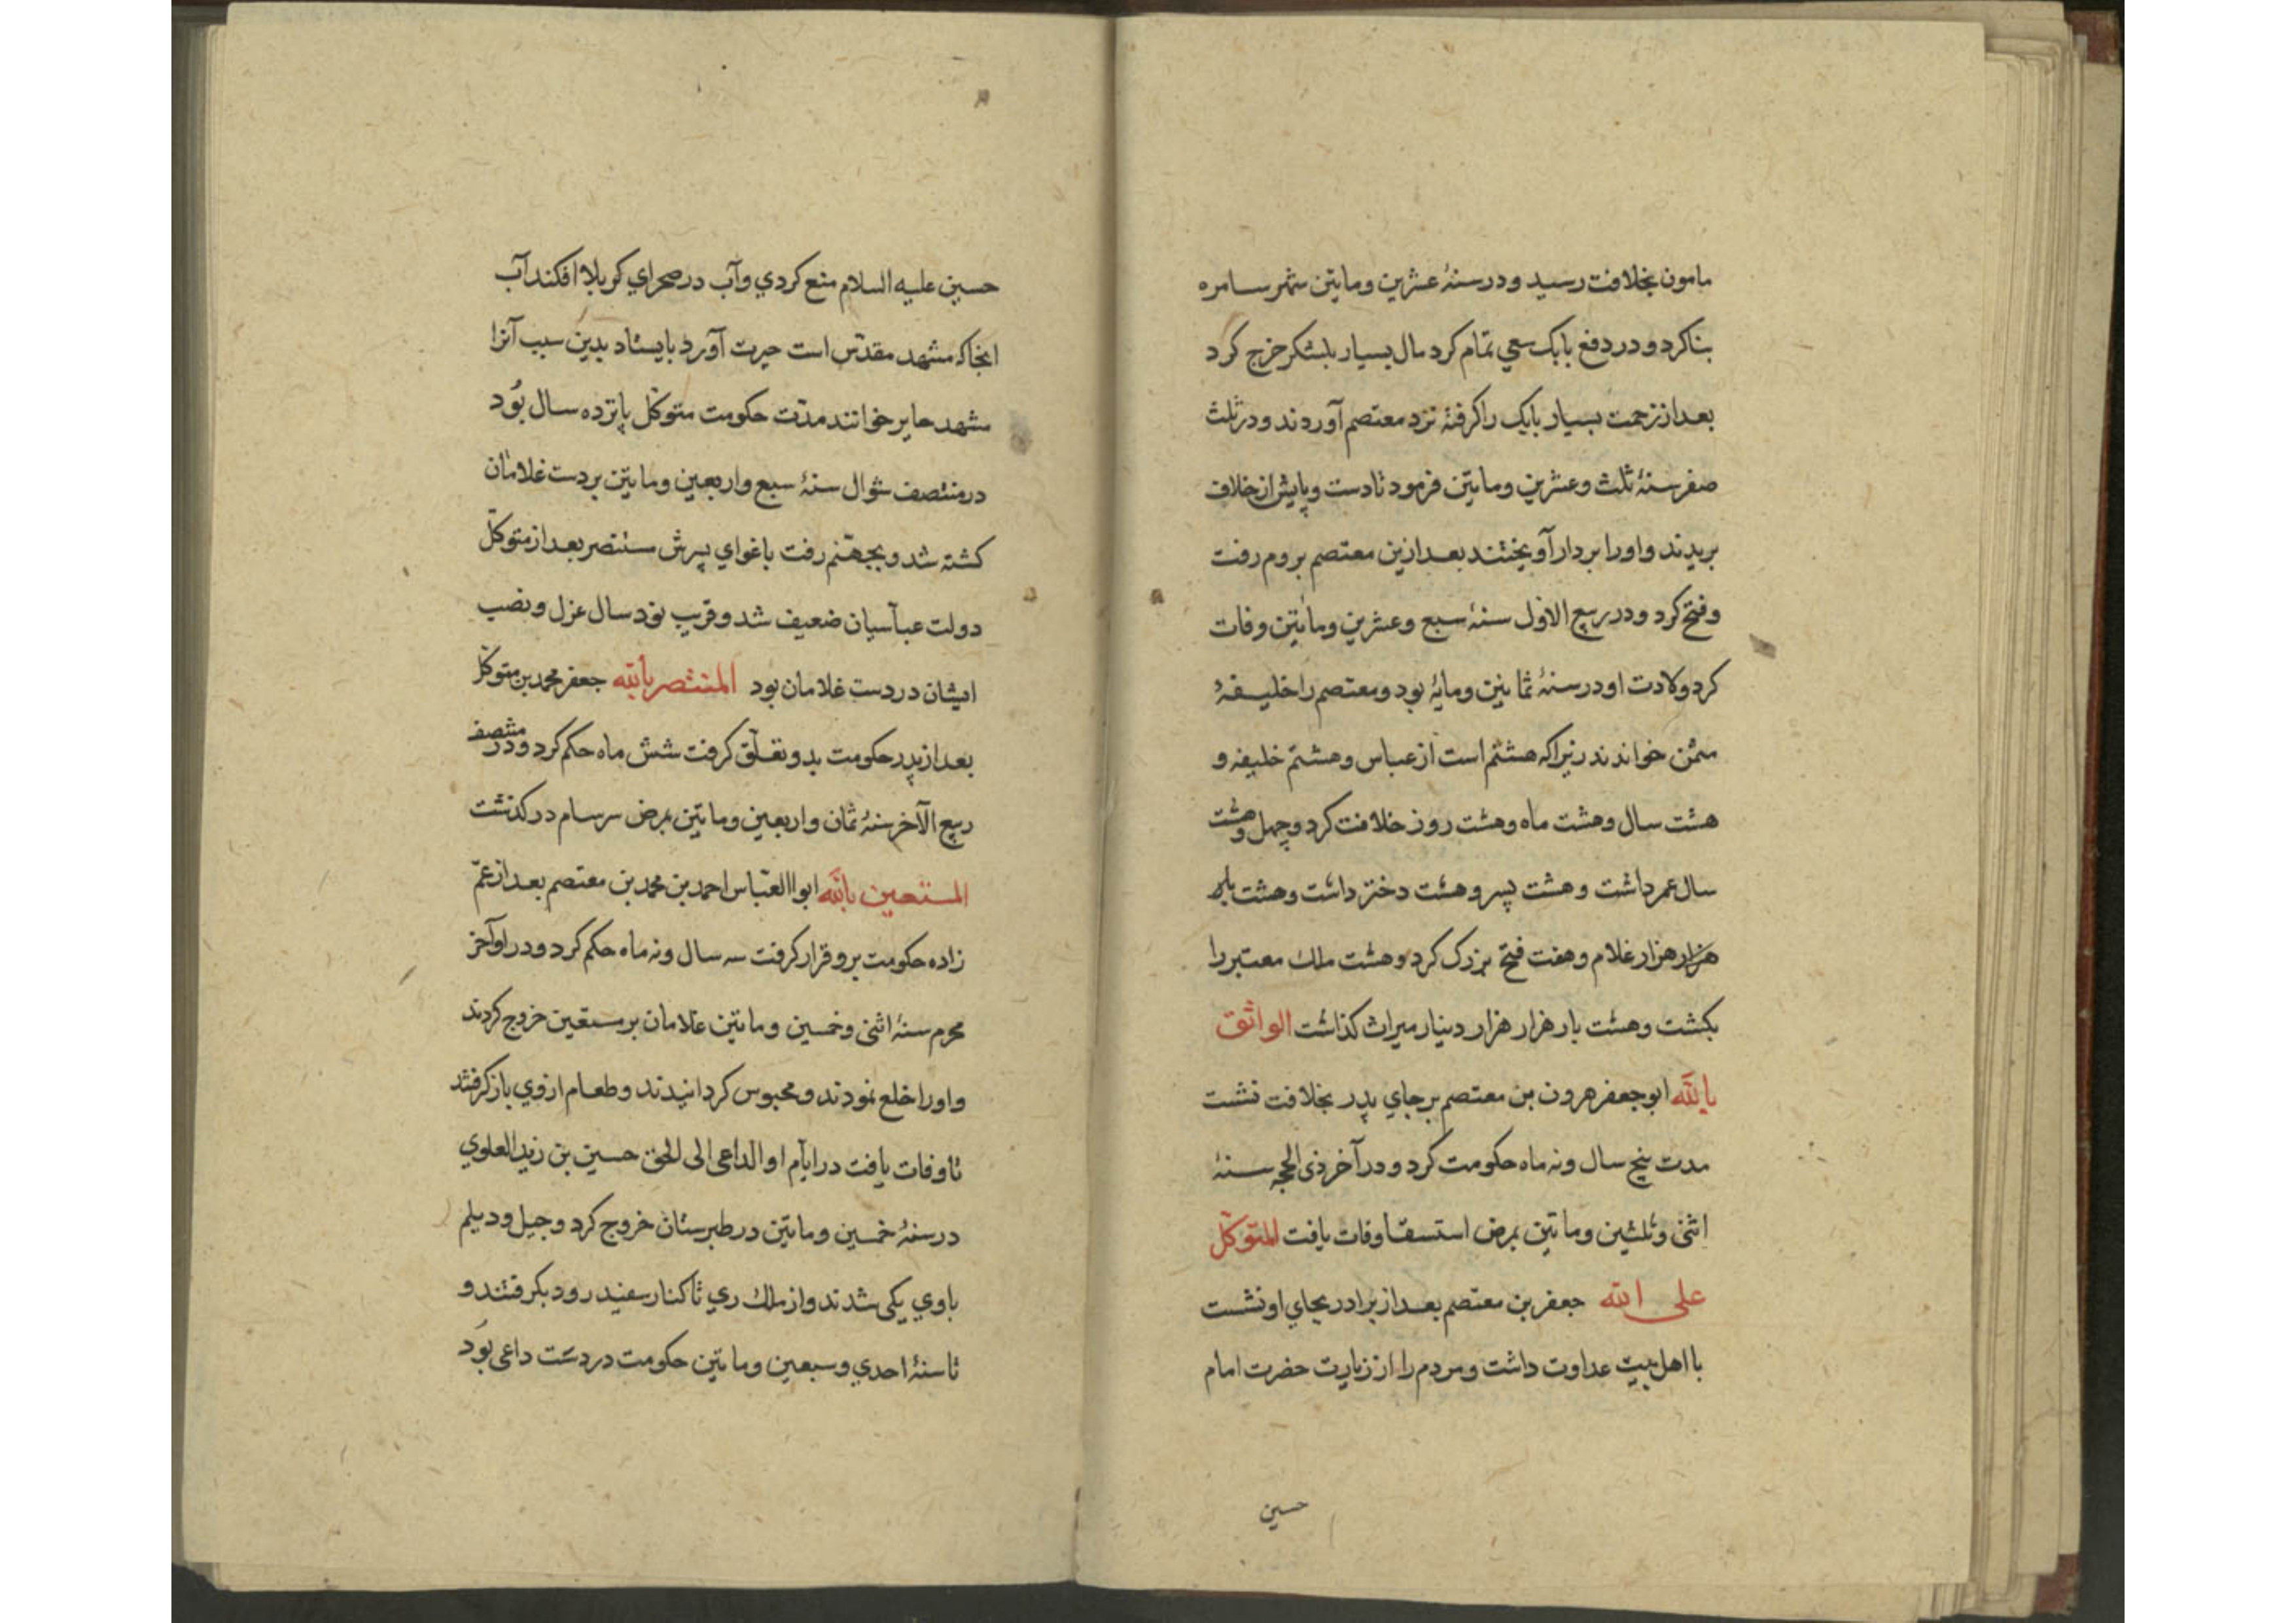 مامون بخلافت رسید و در سنهٔ عشرین و مایتین شهر سامره
بنا کرد و در دفع بابک سعی تمام کرد مال بسیار بلشکر خرج کرد
بعد از زحمت بسیار بابک را کرفته نزد معتصم آوردند و در ثلث
صفر سنهٔ ثلث و عشرین و مایتین فرمود تا دست و پایش از خلاف
بریدند و او را بر دار آویختند بعد ازین معتصم بروم رفت
و فتح کرد و در ربیع الاول سنهٔ سبع و عشرین و مایتین وفات
کرد ولادت او در سنهٔ ثمانین و مایهٔ بود و معتصم را خلیفهٔ
مثمن خواندند زیرا که هشتم است از عباس و هشتم خلیفه و
هشت سال و هشت ماه و هشت روز خلافت کرد و چهل و هشت
سال عمر داشت و هشت پسر و هشت دختر داشت و هشت بار
هزار هزار غلام و هفت فتح بزرک کرد و هشت ملک معتبر را
بکشت و هشت بار هزار هزار دینار میراث کذاشت الواثق
بالله ابو جعفر هرون بن معتصم بر جای پدر بخلافت نشست
مدت پنج سال و نه ماه حکومت کرد و در آخر ذی الحجه سنهٔ
اثنی و ثلثین و ماتین بمرض استسقا وفات یافت المتوکل
علی الله جعفر بن معتصم بعد از برادر بجای او نشست
با اهل بیت عداوت داشت و مردم را از زیارت حضرت امام
حسین
حسین علیه السلام منع کردی و آب در صحرای کربلا افکند آب
انجا که مشهد مقدّس است حیرت آورد بایستاد بدین سبب آنرا
مشهد حایر خوانند مدّت حکومت متوکّل پانزده سال بُود
در منتصف شوال سنهٔ سبع و اربعین و مایتین بر دست غلامان
کشته شد و بجهنّم رفت باغوای پسرش مستنصر بعد از متوکّل
دولت عبآسیان ضعیف شد و قریب نود سال عزل و نصب
ایشان در دست غلامان بود المنتصر بالله جعفر محمد بن متوکل
بعد از پدر حکومت بدو تعلّق کرفت شش ماه حکم کرد و در منتصف
ربیع الآخر سنهٔ ثمان و اربعین و ماتین بمرض سرسام در کذشت
المستعین بالله ابوا العبّاس احمد بن محمد بن معتصم بعد از عمّ
زاده حکومت برو قرار کرفت سه سال و نه ماه حکم کرد و در اوآخر
محرم سنهٔ اثنی و خمسین و ماتین غلامان بر مستعین خروج کردند
و او را خلع نمودند و محبوس کردانیدند و طعام از وی باز کرفتند
تا وفات یافت در ایّام او الداعی الی الحق حسین بن زید العلوی
در سنهٔ خمسین و ماتین در طبرستان خروج کرد و جیل و دیلم
با وی یکی شدند و از ملک ری تا کنار سفید رود بکرفتند و
تا سنهٔ احدی و سبعین و ماتین حکومت در دست داعی بُود